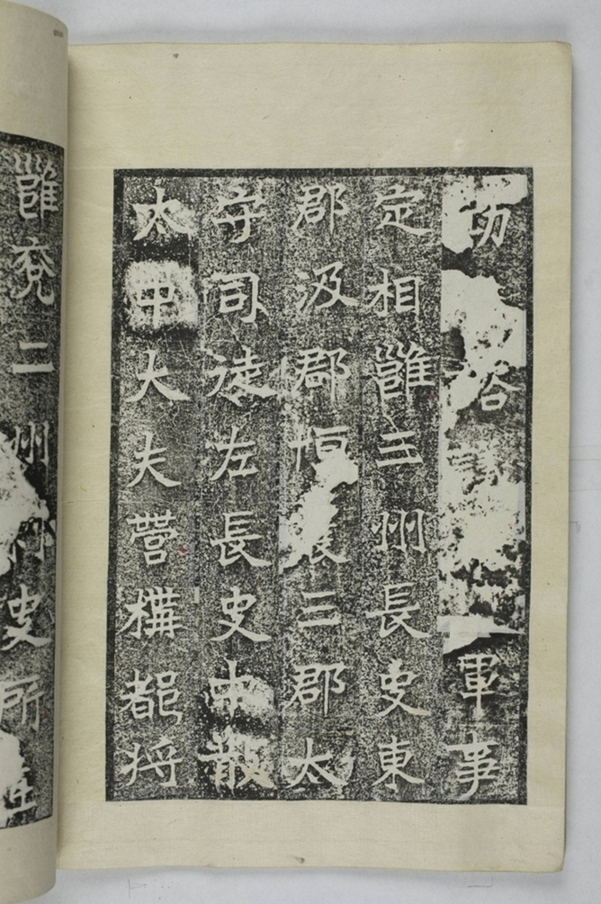 功軍事
定相雝三州長史東
郡汲郡恒三郡太
守司徒左長史中散
太中大夫營構都將
雝兗二州史所